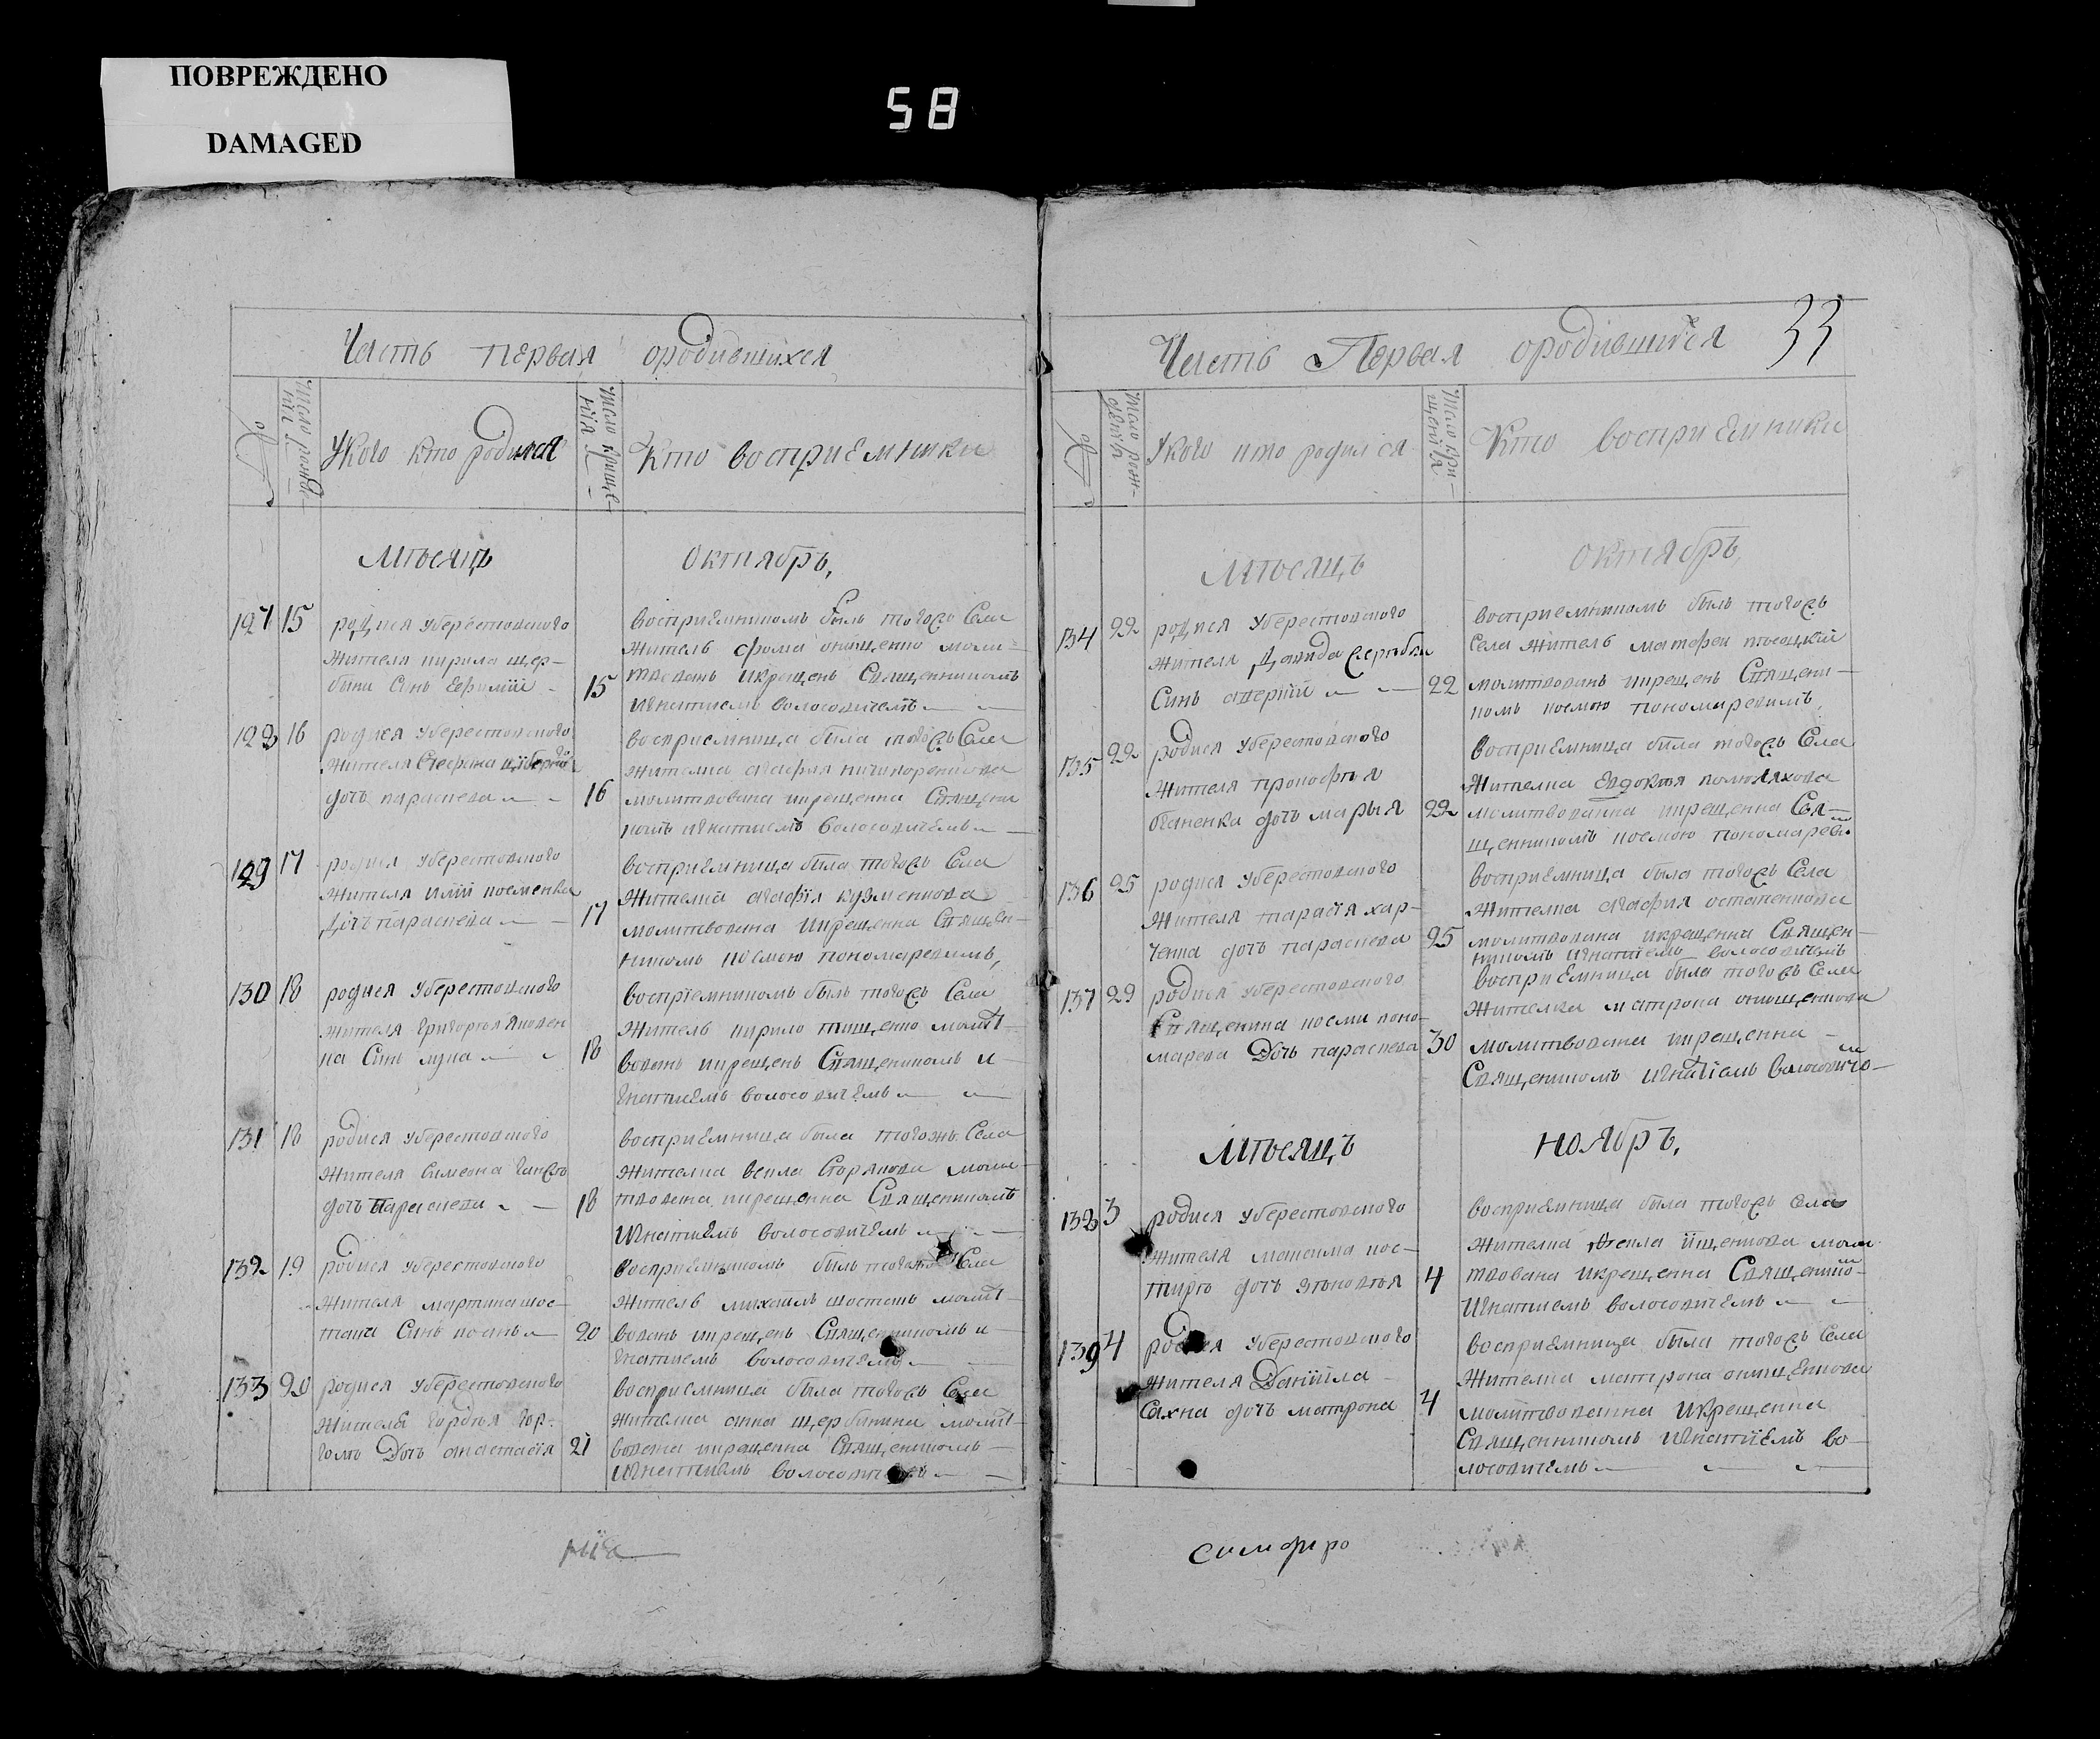 ПОВРЕЖДЕНО
DAMAGED
58
Часть первая ородившихся
№
Число рожде-
нїя
Укого кто родился
Число креще-
нїя
Кто восприемники
Мѣсяцъ Октябрь,
127 15 родися уберестовского
жителя кирила щер-
бины Синъ Ефимїй 15
восприемникомъ былъ тогожъ Села
житель фома онищенко моли-
твованъ икрещенъ Священникомъ
игнатиемъ волосовичемъ
128 16 родися уберестовского
жителя Стефана
дочь параскева 16
восприемница была тогожъ Села
жителка агафия
молитвована икрещенна Священи
комъ игнатиемъ волосовичемъ
129 17 родися уберестовского
жителя илїи косменка
Дочь параскева 17
восприемница была тогожъ Села
жителка агафїя кузменкова
молитвована икрещенна Священ-
никомъ космою пономаревимъ,
130 18 родися уберестовского
жителя григория яковен
ка Синъ лука 18
восприемникомъ былъ тогожъ Села
житель кирило тищенко молит-
вованъ икрещенъ Священикомъ и-
гнатиемъ волосовичемъ
131 18 родися уберестовского
жителя Симеона
дочь параскева 18
восприемница была тогожъ Села
жителка векла моли-
твована икрещенна Священикомъ
игнатиемъ волосовичемъ
132 19 родися уберестовского
жителя мартина шос-
така Синъ косма 20
восприемникомъ былъ тогожъ Села
житель михаилъ шостакъ молит-
вованъ икрещенъ Священникомъ и-
гнатиемъ волосовичемъ
133 20 родися уберестовского
жителя гордѣя гор-
Дочь анастасїя 21
восприемница была тогожъ Села
жителка анна щербинина молит-
вована икрещенна Священикомъ
игнатиемъ волосовичемъ
Часть Первая ородившихся 33
№
Число рож-
денїя
Укого кто родился
Число кре-
щенїя
Кто восприемники
Мѣсяцъ Октябрь,
134 22 родися уберестовского
жителя Давида
Синъ аверкїй 22
восприемникомъ былъ тогожъ
Села житель матфей
молитвованъ икрещенъ Священи-
комъ космою пономаревимъ,
135 22 родися уберестовского
жителя прокофия
дочь марья 22
восприемница была тогожъ Села
жителка Евдокия
молитвованна икрещенна Свя-
щенникомъ космою пономаревимъ
136 25 родися уберестовского
жителя тарасїя хар-
ченка дочь параскева 25
восприемница была тогожъ Села
жителка агафия остапенкова
молитвована икрещенна Священ-
никомъ игнатїемъ волосовичемъ
137 29 родися уберестовского
Священика косми поно-
марева Дочь параскева 30
восприемница была тогожъ Села
жителка матрона онищенкова
молитвована икрещенна
Священикомъ игнатїемъ волосовичемъ
Мѣсяцъ Ноябрь,
138 3 родися уберестовского
жителя максима кос-
тирѣ дочь 4
восприемница была тогожъ Села
жителка векла їщенкова моли-
твована икрещенна Священико-
игнатиемъ волосовичемъ
139 4 родися уберестовского
жителя Данїила
Сахна дочь матрона 4
восприемница была тогожъ Села
жителка матрона онищенкова
молитвованна икрещенна
Священникомъ игнатїемъ во-
лосовичемъ